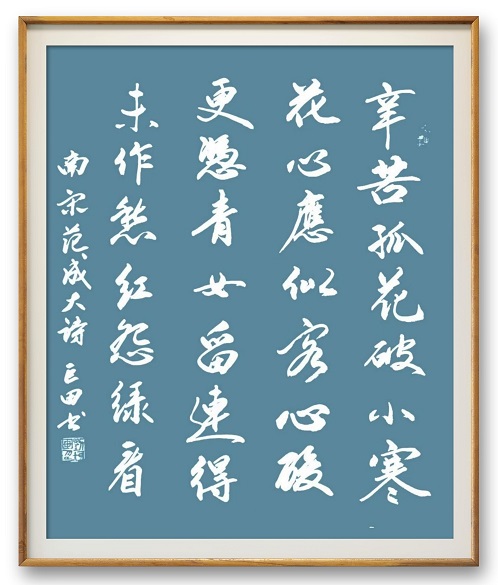 辛苦孤花破小寒
花心應似客心酸
更憑青女留連得
未作愁红怨绿看
南宋范成大诗 巨田书